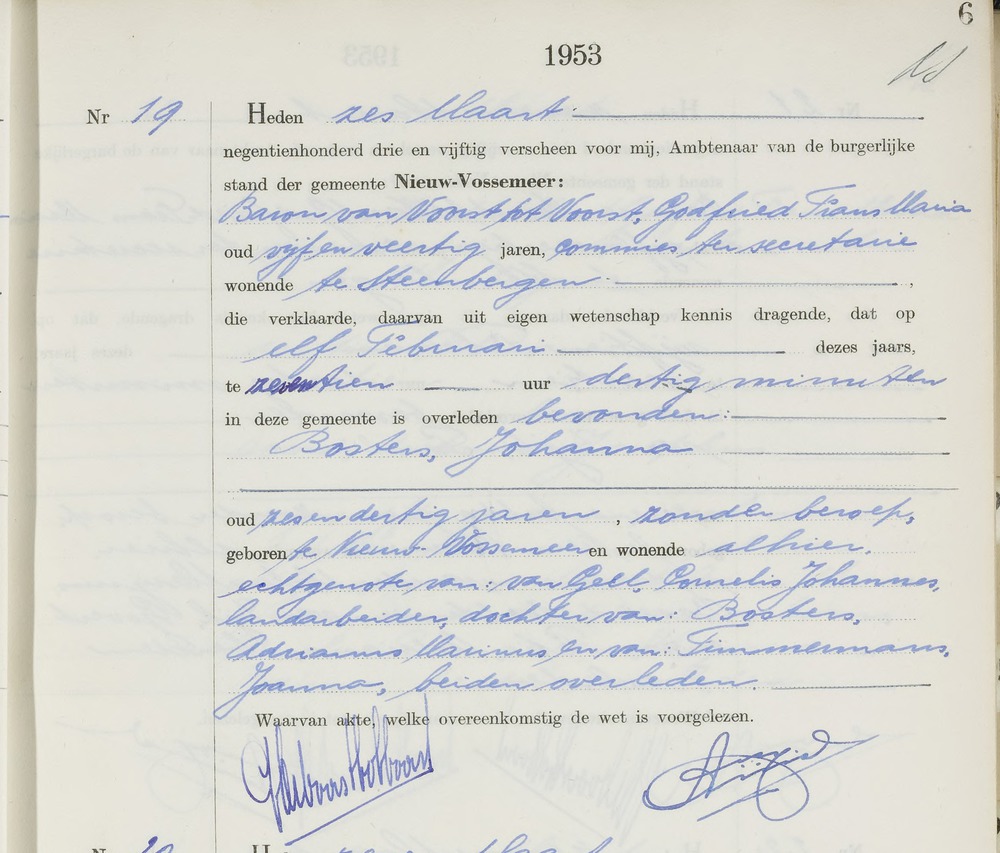 6
1953
Nr 19 Heden zes Maart
negentienhonderd drie en vijftig verscheen voor mij, Ambtenaar van de burgerlijke
stand der gemeente Nieuw-Vossemeer:
Baron van Voorst tot Voorst, Godfried Frans Maria
oud vijf en veertig jaren, commies ter secretarie
wonende te Steenbergen ,
die verklaarde, daarvan uit eigen wetenschap kennis dragende, dat op
elf Februari dezes jaars,
te zeventien uur dertig minuten
in deze gemeente is overleden bevonden:
Bosters, Johanna
oud zes en dertig jaren , zonder beroep,
geboren te Nieuw-Vossemeer en wonende alhier,
echtgenote van: van Geel, Cornelis Johannes,
landarbeider, dochter van: Bosters,
Adrianus Marinus en van: Timmermans,
Joanna, beiden overleden.
Waarvan akte, welke overeenkomstig de wet is voorgelezen.